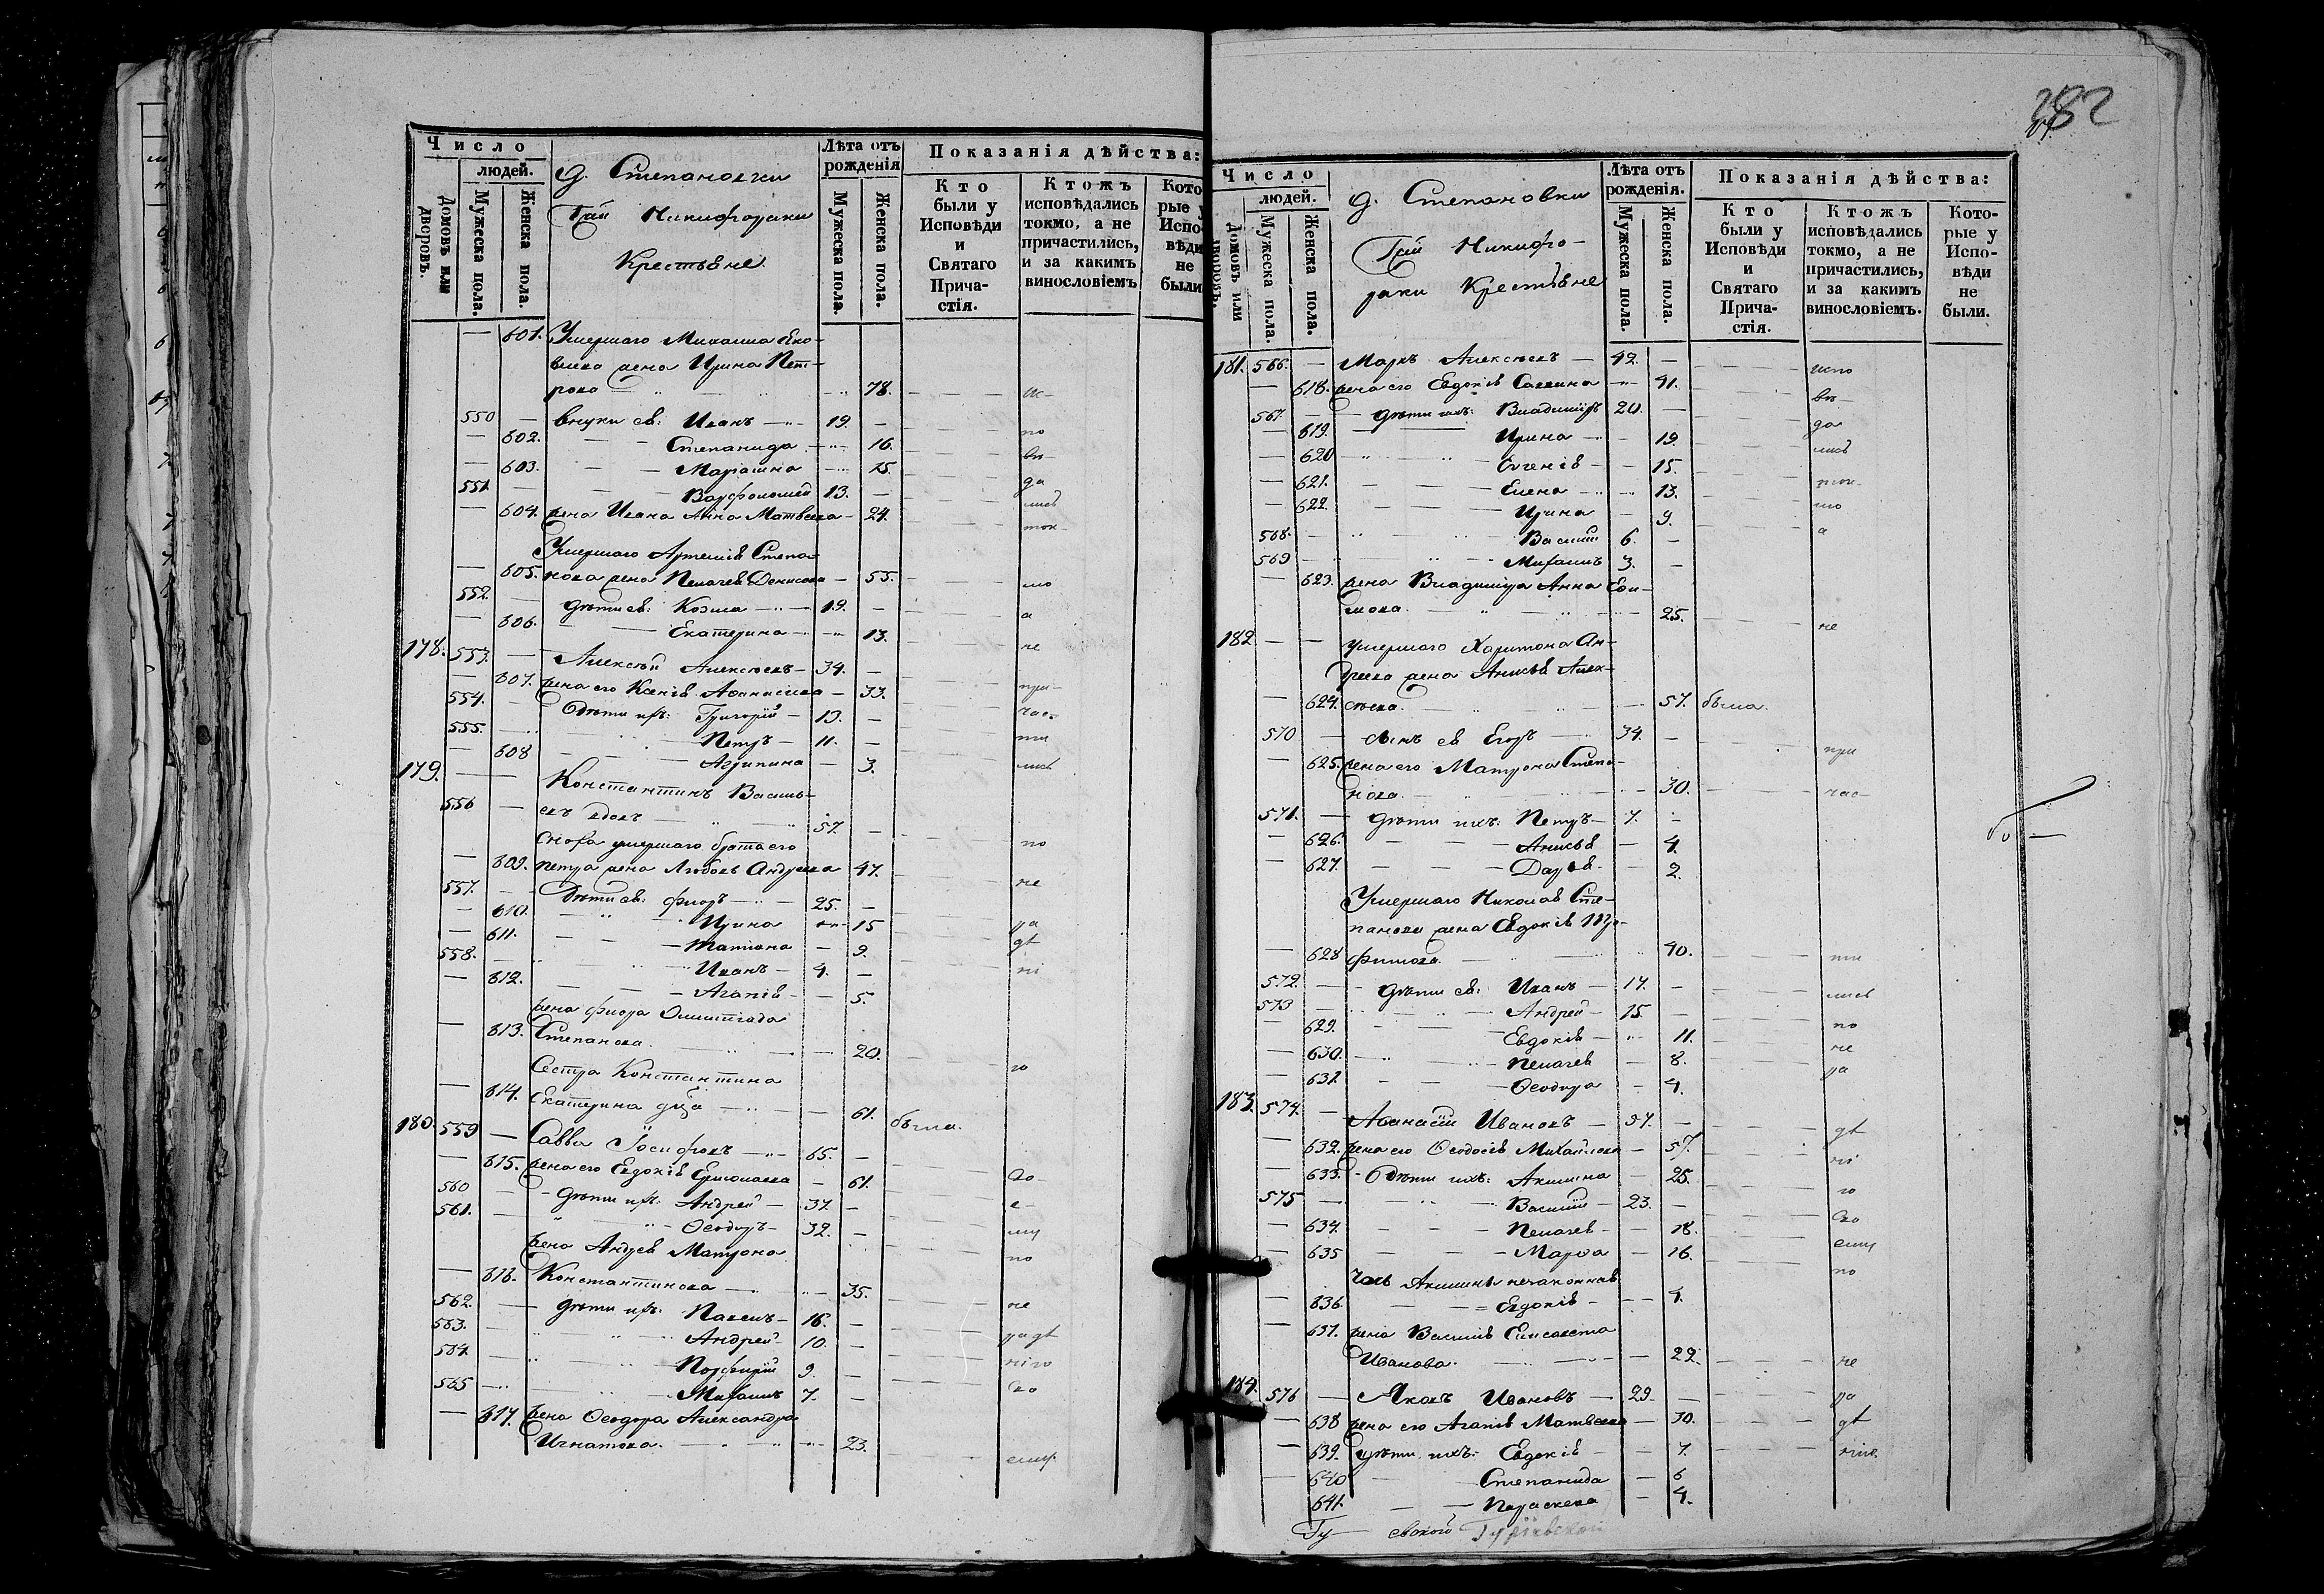 Число
людей.
Домовъ или дворовъ.
Мужеска пола.
Женска пола.
д. Степановки
Гжи Никифораки
Крестьяне.
Лѣта отъ рожденія
Мужеска пола.
Женска пола.
Показанія дѣйства:
Кто были у Исповѣди и Святаго Прича-стія.
Ктожъ исповѣдались токмо, а не причастились, и за какимъ винословіемъ
Кото рые у Испо вѣди не были
— 601. Умершаго Михаила Яко-
влева жена Ирина Пет-
рова 78. ис-
550 — внуки ея: Иванъ 19. — по
— 602. Степанида — 16. вѣ-
— 603. Маріамна — 15. да
551 — Варфоломей 13. — лись
— 604. жена Ивана Анна Матвеева — 24. ток-
Умершаго Артемія Степа-
— 605. нова жена Пелагея Денисова — 55. мо
552. — дѣти ея: Козма 19. — а
— 606. Екатерина — 13. не
178. 553. — Алексѣй Алексѣевъ 34. —
— 607. жена его Ксенія Афанасіева — 33. при-
554. — Дѣти ихъ: Григорій 13. — час-
555. — Петръ 11. — ти
— 608 Агрипина — 3. лись
179. — — Константинъ Василь-
556 — евъ вдовъ 57. —
Сноха умершаго брата его по
— 609. Петра жена Любовь Андреева 47.
557. — Дѣти ея: Флоръ 25. — не
— 610. Ирина — 15 ра
— 611. Татіана — 9. дѣ
558. — Иванъ 4. — ні
— 612. Агапія — 5.
жена Флора Олимпіада
— 613. Степанова. — 20. ю
Сестра Константина
— 614. Екатерина дѣва — 61. была.
180. 559 — Савва Іосифовъ 65. —
— 615. жена его Евдокія Ермолаева — 61. Сво-
560 — дѣти ихъ: Андрей 37. — е-
561. — Ѳеодоръ 32. — му
жена Андрея Матрона по
— 616. Константинова — 35.
562. — дѣти ихъ: Павелъ 16. — не
563. — Андрей 10. — радѣ
564. — Порфирій 9. — нію
565 — Михаилъ 7. — Сво
— 617. жена Ѳеодора Александра
Игнатова. — 23. ему.
282
Число
людей.
Домовъ или дворовъ.
Мужеска пола.
Женска пола.
д. Степановки
Гжи Никифо-
раки Крестьяне
Лѣта отъ рожденія.
Мужеска пола.
Женска пола.
Показанія дѣйства:
Кто были у Исповѣди и Святаго Прича-стія.
Ктожъ исповѣдались токмо, а не причастились, и за какимъ винословіемъ.
Кото-рые у Испо-вѣди не были.
181. 566. — Маркъ Алексѣевъ — 42. — испо
— 618. жена его Евдокія Саввина — 41. вѣ-
567. — дѣти ихъ: Владиміръ 20. — да
— 619. Ирина — 19. лись
— 620 Евгенія — 15. ток-
— 621. Елена — 13. мо
— 622. Ирина — 9. а
568. — Василій 6. —
569 — Михаилъ 3. —
— 623. жена Владиміра Анна Ефи-
мова. 25. не
182. — — умершаго Харитона Ан-
дреева жена Анисья Алек-
— 624. сѣева. — 57. была.
570 — сынъ ея Егоръ 34. — при
— 625. жена его Матрона Степа-
нова. — 30. час-
571. — дѣти ихъ: Петръ 7. —
— 626. Анисья — 4.
— 627. Дарья — 2.
Умершаго Николая Сте-
панова жена Евдокія Тро-
— 628 фимова. 40. ти
572. — дѣти ея: Иванъ 17. — лись
573 — Андрей 15. — по
— 629. Евдокія — 11. не
— 630. Пелагея — 8. ра
— 631. Ѳеодора — 4.
183. 574. — Афанасій Ивановъ 57. — дѣ
— 632. жена его Ѳеодосія Михайлова — 57. ні
— 633. Дѣти ихъ: Акилина — 25. ю
575 — Василій 23. — Сво
— 634. Пелагея — 18. ему
— 635 Марфа — 16. по
Акилины незаконная
— 636. Евдокія — 4.
— 637. жена Василія Елисавета
Иванова. — 22. не
184. 576 — Яковъ Ивановъ 29. — ра
— 638 жена его Агапія Матвеева — 30. дѣ
— 639. дѣти ихъ: Евдокія — 7. нію.
640 Степанида — 6
641. Параскева — 4.